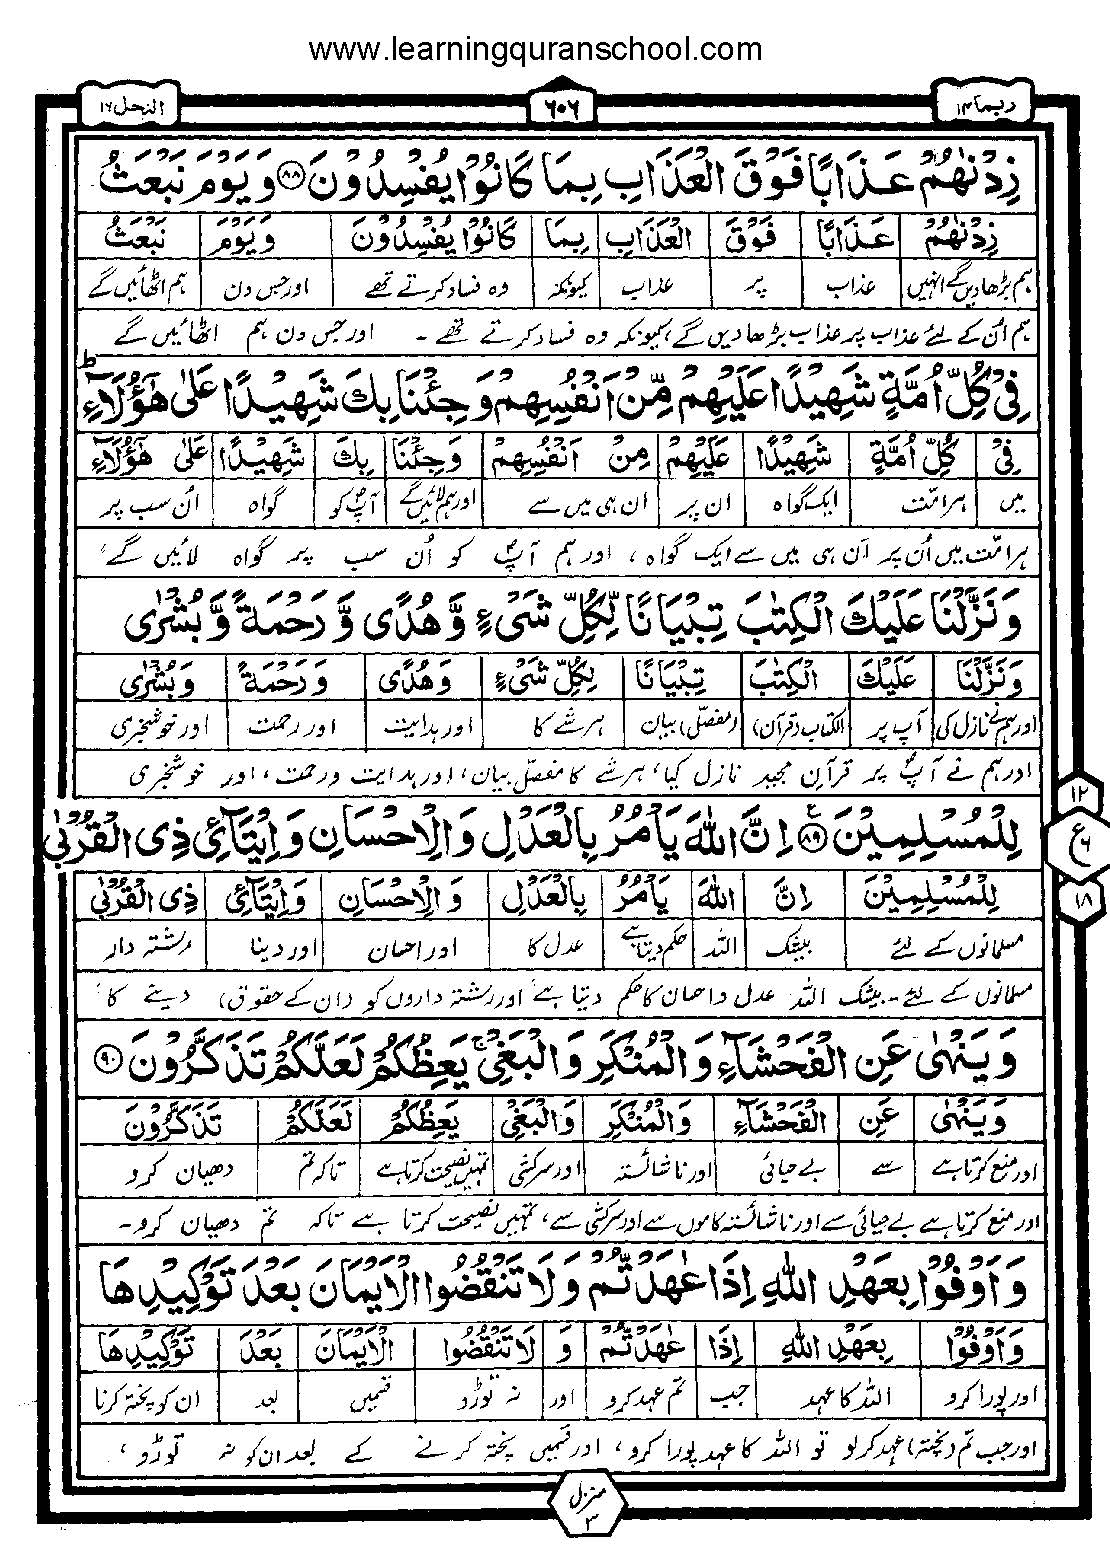 www.learningquranschool.com
ربما ۱۴
۶۰۶
النحل ۱۶
زِدْنٰهُمْ عَذَابًا فَوْقَ الْعَذَابِ بِمَا كَانُوْا يُفْسِدُوْنَ ۸۸ وَ يَوْمَ نَبْعَثُ
زِدْنٰهُمْ عَذَابًا فَوْقَ الْعَذَابِ بِمَا كَانُوْا يُفْسِدُوْنَ وَيَوْمَ نَبْعَثُ
ہم بڑھادیں گے انہیں عذاب پر عذاب کیونکہ وہ فساد کرتے تھے اور جس دن ہم اٹھائیں گے
ہم اُن کے لئے عذاب پر عذاب بڑھادیں گے، کیونکہ وہ فساد کرتے تھے ۔ اور جس دن ہم اٹھائیں گے
فِيْ كُلِّ اُمَّةٍ شَهِيْدًا عَلَيْهِمْ مِّنْ اَنْفُسِهِمْ وَجِئْنَا بِكَ شَهِيْدًا عَلٰى هٰٓؤُلَآءِ ؕ
فِيْ كُلِّ اُمَّةٍ شَهِيْدًا عَلَيْهِمْ مِنْ اَنْفُسِهِمْ وَجِئْنَا بِكَ شَهِيْدًا عَلٰى هٰٓؤُلَآءِ
میں ہر امّت ایک گواہ ان پر ان ہی میں سے اور ہم لائیں گے آپؐ کو گواہ اُن سب پر
ہر امّت میں اُن پر اُن ہی میں سے ایک گواہ ، اور ہم آپؐ کو اُن سب پر گواہ لائیں گے،
وَنَزَّلْنَا عَلَيْكَ الْكِتٰبَ تِبْيَانًا لِّكُلِّ شَيْءٍ وَّهُدًى وَّ رَحْمَةً وَّبُشْرٰى
وَنَزَّلْنَا عَلَيْكَ الْكِتٰبَ تِبْيَانًا لِكُلِّ شَيْءٍ وَهُدًى وَرَحْمَةً وَبُشْرٰى
اور ہم نے نازل کی آپ پر الکتاب (قرآن) (مفصّل) بیان ہر شے کا اور ہدایت اور رحمت اور خوشخبری
اور ہم نے آپؐ پر قرآن مجید نازل کیا، ہر شے کا مفصّل بیان، اور ہدایت و رحمت، اور خوشخبری
لِلْمُسْلِمِيْنَ ۸۹ ع اِنَّ اللّٰهَ يَاْمُرُ بِالْعَدْلِ وَالْاِحْسَانِ وَاِيْتَآئِ ذِي الْقُرْبٰى
۱۲
ع ۶
۱۸
لِلْمُسْلِمِيْنَ اِنَّ اللّٰهَ يَاْمُرُ بِالْعَدْلِ وَالْاِحْسَانِ وَاِيْتَآئِ ذِي الْقُرْبٰى
مسلمانوں کے لئے بیشک اللہ حکم دیتا ہے عدل کا اور احسان اور دینا رشتہ دار
مسلمانوں کے لئے ۔ بیشک اللہ عدل و احسان کا حکم دیتا ہے اور رشتہ داروں کو (ان کے حقوق) دینے کا،
وَيَنْهٰى عَنِ الْفَحْشَآءِ وَالْمُنْكَرِ وَالْبَغْيِ ۚ يَعِظُكُمْ لَعَلَّكُمْ تَذَكَّرُوْنَ ۹۰
وَيَنْهٰى عَنِ الْفَحْشَآءِ وَالْمُنْكَرِ وَالْبَغْيِ يَعِظُكُمْ لَعَلَّكُمْ تَذَكَّرُوْنَ
اور منع کرتا ہے سے بے حیائی اور ناشائستہ اور سرکشی تمہیں نصیحت کرتا ہے تاکہ تم دھیان کرو
اور منع کرتا ہے بے حیائی سے اور ناشائستہ کاموں سے اور سرکشی سے، تمہیں نصیحت کرتا ہے تاکہ تم دھیان کرو ۔
وَاَوْفُوْا بِعَهْدِ اللّٰهِ اِذَا عٰهَدْتُّمْ وَلَا تَنْقُضُوا الْاَيْمَانَ بَعْدَ تَوْكِيْدِهَا
وَاَوْفُوْا بِعَهْدِ اللّٰهِ اِذَا عٰهَدْتُّمْ وَ لَا تَنْقُضُوا الْاَيْمَانَ بَعْدَ تَوْكِيْدِهَا
اور پورا کرو اللہ کا عہد جب تم عہد کرو اور نہ توڑو قسمیں بعد ان کو پختہ کرنا
اور جب تم (پختہ) عہد کر لو تو اللہ کا عہد پورا کرو، اور قسمیں پختہ کرنے کے بعد ان کو نہ توڑو ،
منزل ۳